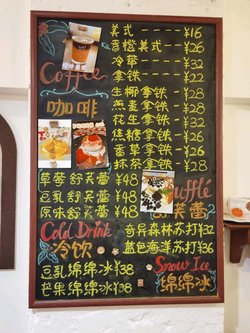 美式----¥16
香橙美式--¥26
冷萃----¥32
拿铁----¥22
Coffee
咖啡
生椰拿铁¥28
燕麦拿铁¥28
花生拿铁¥32
焦糖拿铁¥28
香草拿铁¥26
抹茶拿铁¥28
草莓舒芙蕾¥48
豆乳舒芙蕾¥48
原味舒芙蕾¥48
舒芙蕾
Cold Drink
冷饮
奇异森林苏打¥32
蓝色海洋苏打¥36
豆乳绵绵冰¥38
芒果绵绵冰¥38
Snow Ice
绵绵冰